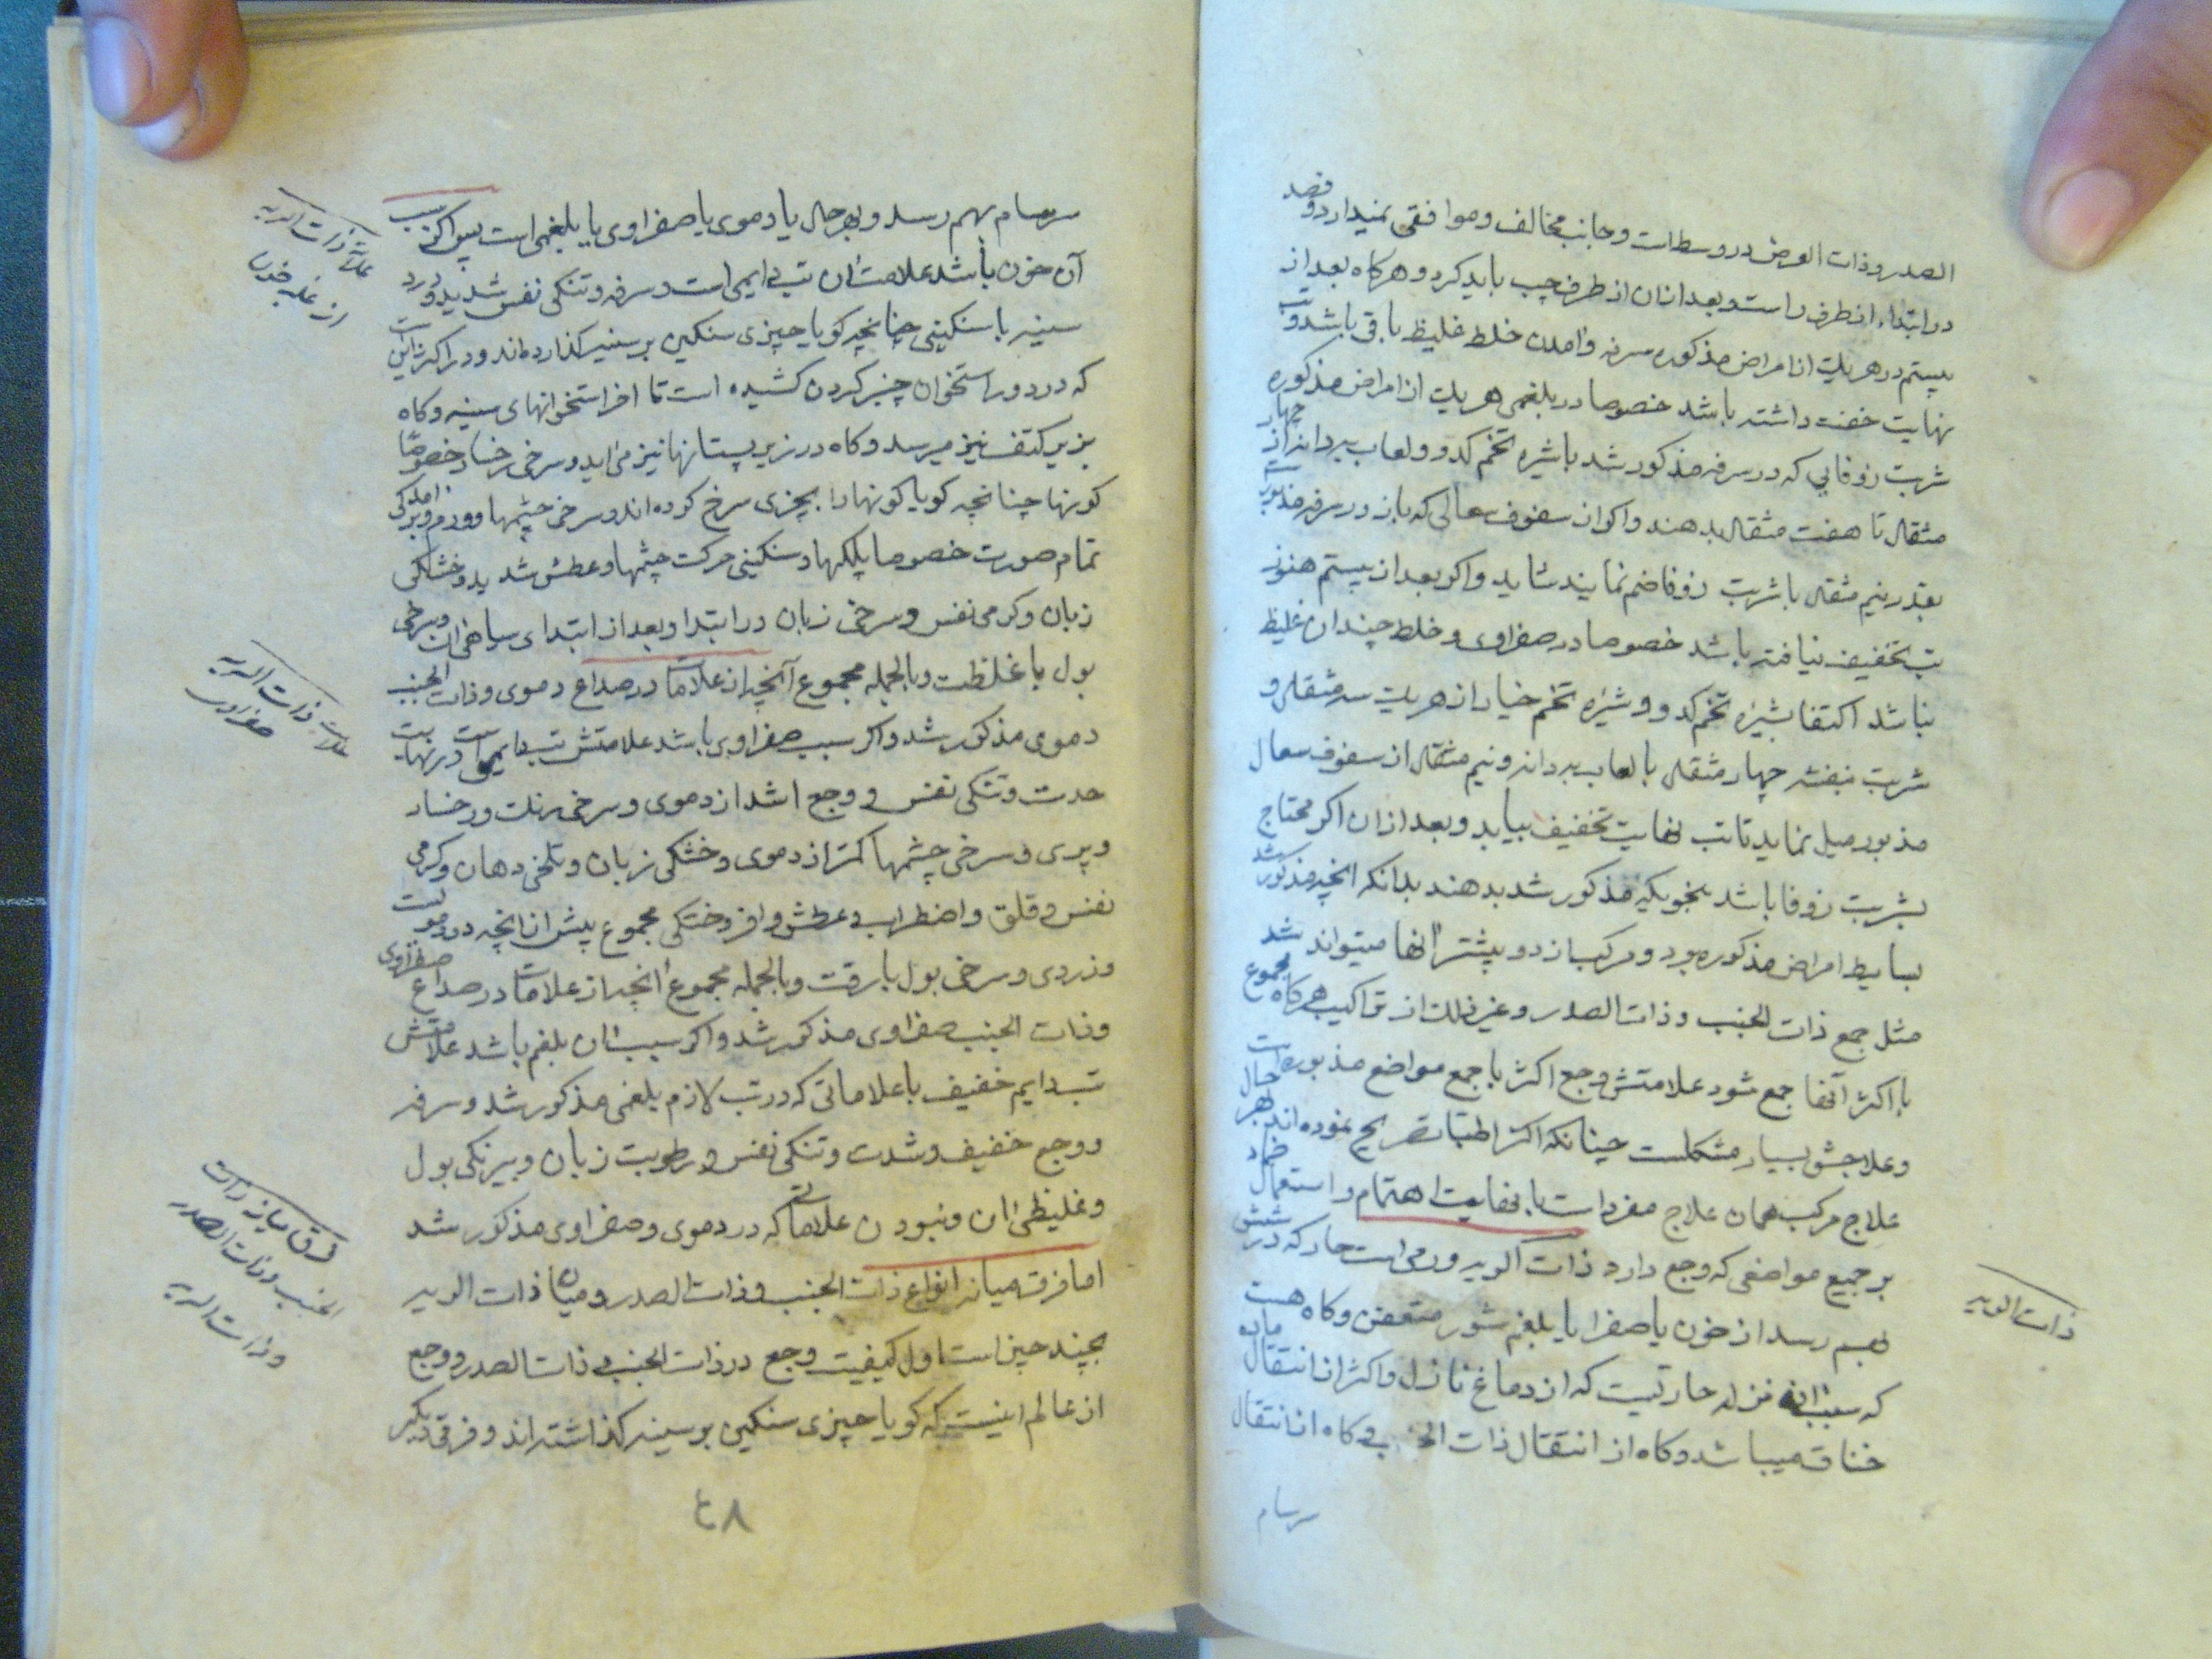 الصدر و ذات العرض در وسط است و جانب مخالف و موافقی نمیدارد و فصد
در ابتداء از طرف راست و بعد از ان از طرف چپ باید کرد و هرکاه بعد از
بیستم در هر یك از امراض مذکوره سرفه و امدن خلط غلیظ باقی باشد و تب
نهایت خفت داشته باشد خصوصا در بلغمی هر یك از امراض مذکوره
شربت زوفایی که در سرفه مذکور شد با شیره تخم کدو و لعاب بهدانه از چهار
مثقال تا هفت مثقال بدهند و اکر از سفوف سعالی که باز در سرفه مذکور
بقدر نیم مثقال با شربت زوفا ضم نمایند شاید و اکر بعد از بیستم هنوز
تب تخفیف نیافته باشد خصوصا در صفراوی و خلط چندان غلیظ
نباشد اکتفا بشیره تخم کدو و شیره تخم خیار از هر یك سه مثقال و
شربت بنفشه چهار مثقال با لعاب بهدانه و نیم مثقال از سفوف سعال
مذبور میل نماید تا تب نهایت تخفیف بیابد و بعد از ان اکر محتاج
بشربت زوفا باشد بنحویکه مذکور شد بدهند بدانکه انچه مذکور شد
بسایط امراض مذکوره بود و مرکب از دو بیشتر انها میتواند شد
مثل جمع ذات الجنب و ذات الصدر و غیر ذلك از تراکیب هرکاه مجموع
با اکثر آنها جمع شود علامتش وجع اکثر با جمع مواضع مذبوره است
و علاجش بسیار مشکلست چنانکه اکثر اطبا تصریح نموده اند بهر حال
علاج مرکب همان علاج مفرد است با نهایت اهتمام و استعمال ضماد
بر جمیع مواضعی که وجع دارد ذات الریه ورمی است حار که در شش
بهم رسد از خون یا صفرا یا بلغم شور متعفن و کاه هست
که سبب ان نزله حاریست که از دماغ نازل و اکثر از انتقال ماده
خناق میباشد و کاه از انتقال ذات الجنب و کاه از انتقال
سرسام
ذات الریه
سرسام بهم رسد و بهر حال یا دموی یا صفراوی یا بلغمی است پس اکر سبب
آن خون باشد علامت ان تب دایمی است و سرفه و تنکی نفس شدید و درد
سینه با سنکینی چنانچه کویا چیزی سنکین بر سینه کذارده اند و در اکثر این است
که درد در استخوان چنبر کردن کشیده است تا اخر استخوانهای سینه و کاه
بزیر کتف نیز میرسد و کاه در زیر پستانها نیز می اید و سرخی رخسار خصوصا
کونها چنانچه کویا کونها را بچیزی سرخ کرده اند و سرخی چشمها و ورم و بر امدکی
تمام صورت خصوصا پلکها و سنکینی حرکت چشمها و عطش شدید و خشکی
زبان و کرمی نفس و سرخی زبان در ابتدا و بعد از ابتدا سیاهی ان و سرخی
بول با غلظت و بالجمله مجموع آنچه از علامات در صداع دموی و ذات الجنب
دموی مذکور شد و اکر سبب صفراوی باشد علامتش تب دایمی است در نهایت
حدت و تنکی نفس و وجع اشد از دموی و سرخی رنك و رخسار
و پری و سرخی چشمها کمتر از دموی و خشکی زبان و تلخی دهان و کرمی
نفس و قلق و اضطراب و عطش و افروختکی مجموع بیش از انچه در دمویست
و زردی و سرخی بول با رقت و بالجمله مجموع انچه از علامات در صداع صفراوی
و ذات الجنب صفراوی مذکور شد و اکر سبب ان بلغم باشد علامتش
تب دایم خفیف با علاماتی که در تب لازم بلغمی مذکور شد و سرفه
و وجع خفیف و شدت و تنکی نفس و رطوبت زبان و بیرنکی بول
و غلیظی ان و نبودن علاماتی که در دموی و صفراوی مذکور شد
اما فرق میانه انواع ذات الجنب و ذات الصدر و میان ذات الریه
بچند چیز است اول کیفیت وجع در ذات الجنب و ذات الصدر و وجع
از عالم اینست که کویا چیزی سنکین بر سینه کذاشته اند و فرق دیکر
علامت ذات الریه
از غلبه خون
علامت ذات الریه
صفراوی
فرق میان ذات
الجنب و ذات الصدر
و ذات الریه
٤٨